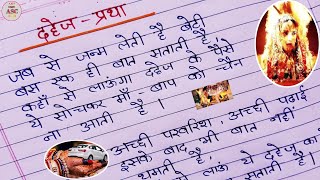 दहेज - प्रथा
जब से जन्म लेती है बेटी
बस एक ही बात सताती है,
कहाँ से लाऊंगा दहेज के पैसे
ये सोचकर माँ - बाप को चैन
ना आती है।
अच्छी परवरिश, अच्छी पढ़ाई
इसके बाद भी बात नहीं
है,
ये दहेज का